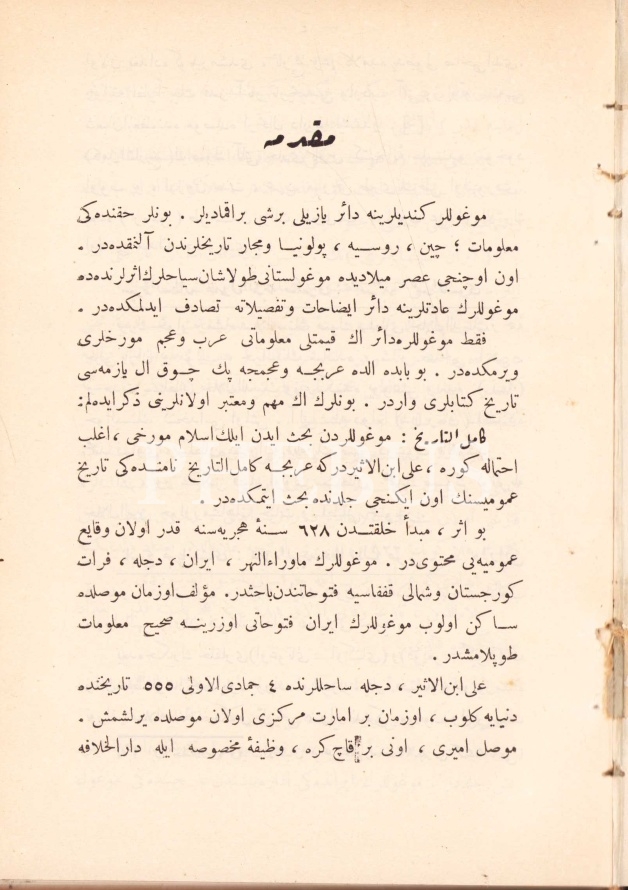 مقدمه
موغوللر كنديلرينه دائر يازيلى برشى براقماديلر . بونلر حقنده كى
معلومات ؛ چين ، روسيه ، پولونيا ومجار تاريخلرندن آلنمقده در .
اون اوچنجى عصر ميلاديده موغولستانى طولاشان سياحلرك اثرلرنده ده
موغوللرك عادتلرينه دائر ايضاحات وتفصيلاته تصادف ايدلمكده در .
فقط موغوللره دائر اك قيمتلى معلوماتى عرب وعجم مورخلرى
ويرمكده در . بو بابده الده عربجه وعجمجه پك چوق ال يازمه سى
تاريخ كتابلرى واردر . بونلرك اك مهم ومعتبر اولانلرينى ذكر ايده لم :
كامل التاريخ : موغوللردن بحث ايدن ايلك اسلام مورخى ، اغلب
احتماله كوره ، على ابن الاثير در كه عربجه كامل التاريخ نامنده كى تاريخ
عموميسنك اون ايكنجى جلدنده بحث ايتمكده در .
بو اثر ، مبدأ خلقتدن ٦٢٨ سنۀ هجريه سنه قدر اولان وقايع
عموميه يى محتوى در . موغوللرك ماوراءالنهر ، ايران ، دجله ، فرات
كورجستان وشمالى قفقاسيه فتوحاتندن باحثدر . مؤلف اوزمان موصلده
ساكن اولوب موغوللرك ايران فتوحاتى اوزرينه صحيح معلومات
طوپلامشدر .
على ابن الاثير ، دجله ساحللرنده ٤ جمادى الاولى ٥٥٥ تاريخنده
دنيايه كلوب ، اوزمان بر امارت مركزى اولان موصلده يرلشمش .
موصل اميرى ، اونى بر قاچ كره ، وظيفۀ مخصوصه ايله دار الخلافه